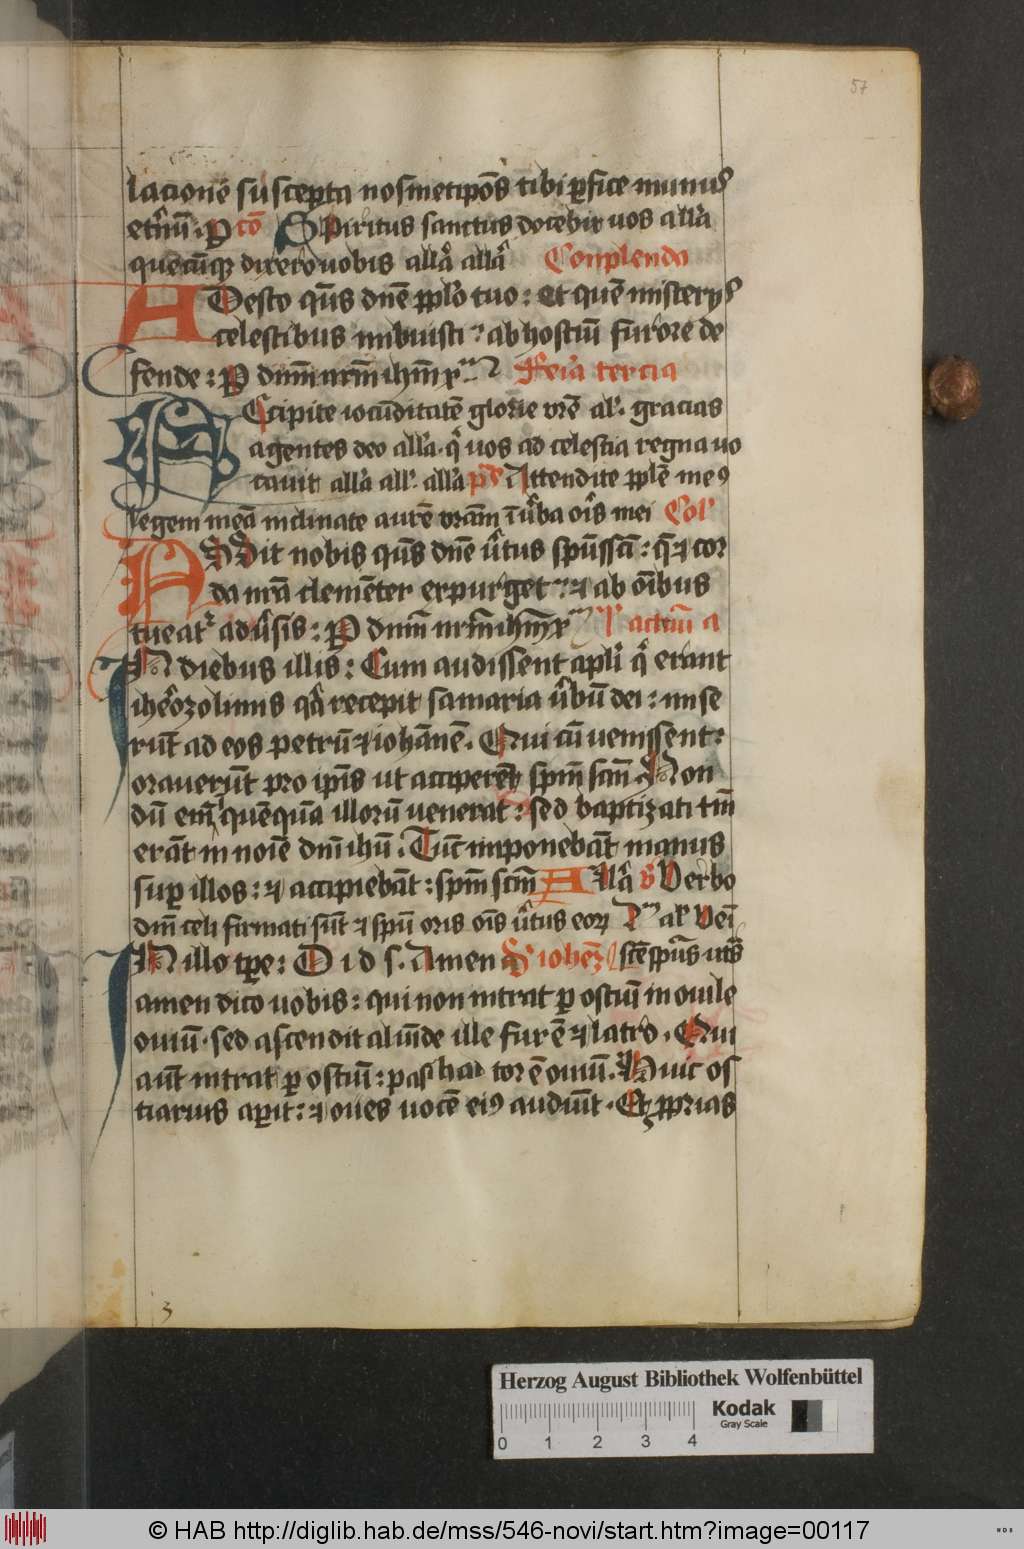 57
lacionē suscepta nosmetipōs tibi ꝑfice munꝰ
etn̄ū . P cō Spiritus sanctus docebit uos allˀa
quecūqꝫ dixero uobis allˀa allˀa Conplenda
ADesto qūs dn̄e pplo tuo : et quē misteryꝰ
celestibus inbuisti : ab hostiū furore de
fende : P dn̄m nr̄m ihm̄ xᵐ Feria tercia
ACcipite iocūditatē glorie vr̄e alˀ. gracias
agentes deo allˀa . qˀ uos ad celestia regna uo
cauit allˀa allˀ. allˀa ps̄ Attendite pplē meꝰ
legem meā inclinate aurē vrām ī ūba oris mei Colˀ
ADSit nobis qūs dn̄e ūtus spūssc̄i : q̄ ⁊ cor
da nr̄a clemēter expurget : ⁊ ab oībus
tueatˀ adūsis : P dn̄m nr̄m ihm̄ xᵐ Lˀ actuū a
IN diebus illis : Cum audissent apli qˀ erant
iherozolimis qˀa recepit samaria ūbū dei : mise
rūt ad eos petrū ⁊ iohānē . Qui cū uenissent :
orauerūt pro ipīs ut acciperēt spm̄ sc̄m Non
dū em̄ quēquā illorū uenerat : sed baptizati tm̄
erāt in noīe dn̄i ihū . Tūc inponebāt manus
suꝑ illos : ⁊ accipiebāt : spm̄ sc̄m Allˀa v Verbo
dn̄i celi firmati sūt ⁊ spū oris eīs ūtus eoꝝ alˀ Veī
IN illo tꝑe : D i d s . Amen S iohēꝫ sc̄e spūs
amen dico uobis : qui non intrat ꝑ ostiū in ouile
ouiū . sed ascendit aliūde ille fur ē ⁊ latro . Qui
aūt intrat ꝑ ostiū : pastor ē ouiū . Huic os
tiarius aꝑit : ⁊ oues uocē eiꝰ audiūt . Et pprias
3
Herzog August Bibliothek Wolfenbüttel
Kodak
Gray Scale
0 1 2 3 4
© HAB http://diglib.hab.de/mss/546-novi/start.htm?image=00117